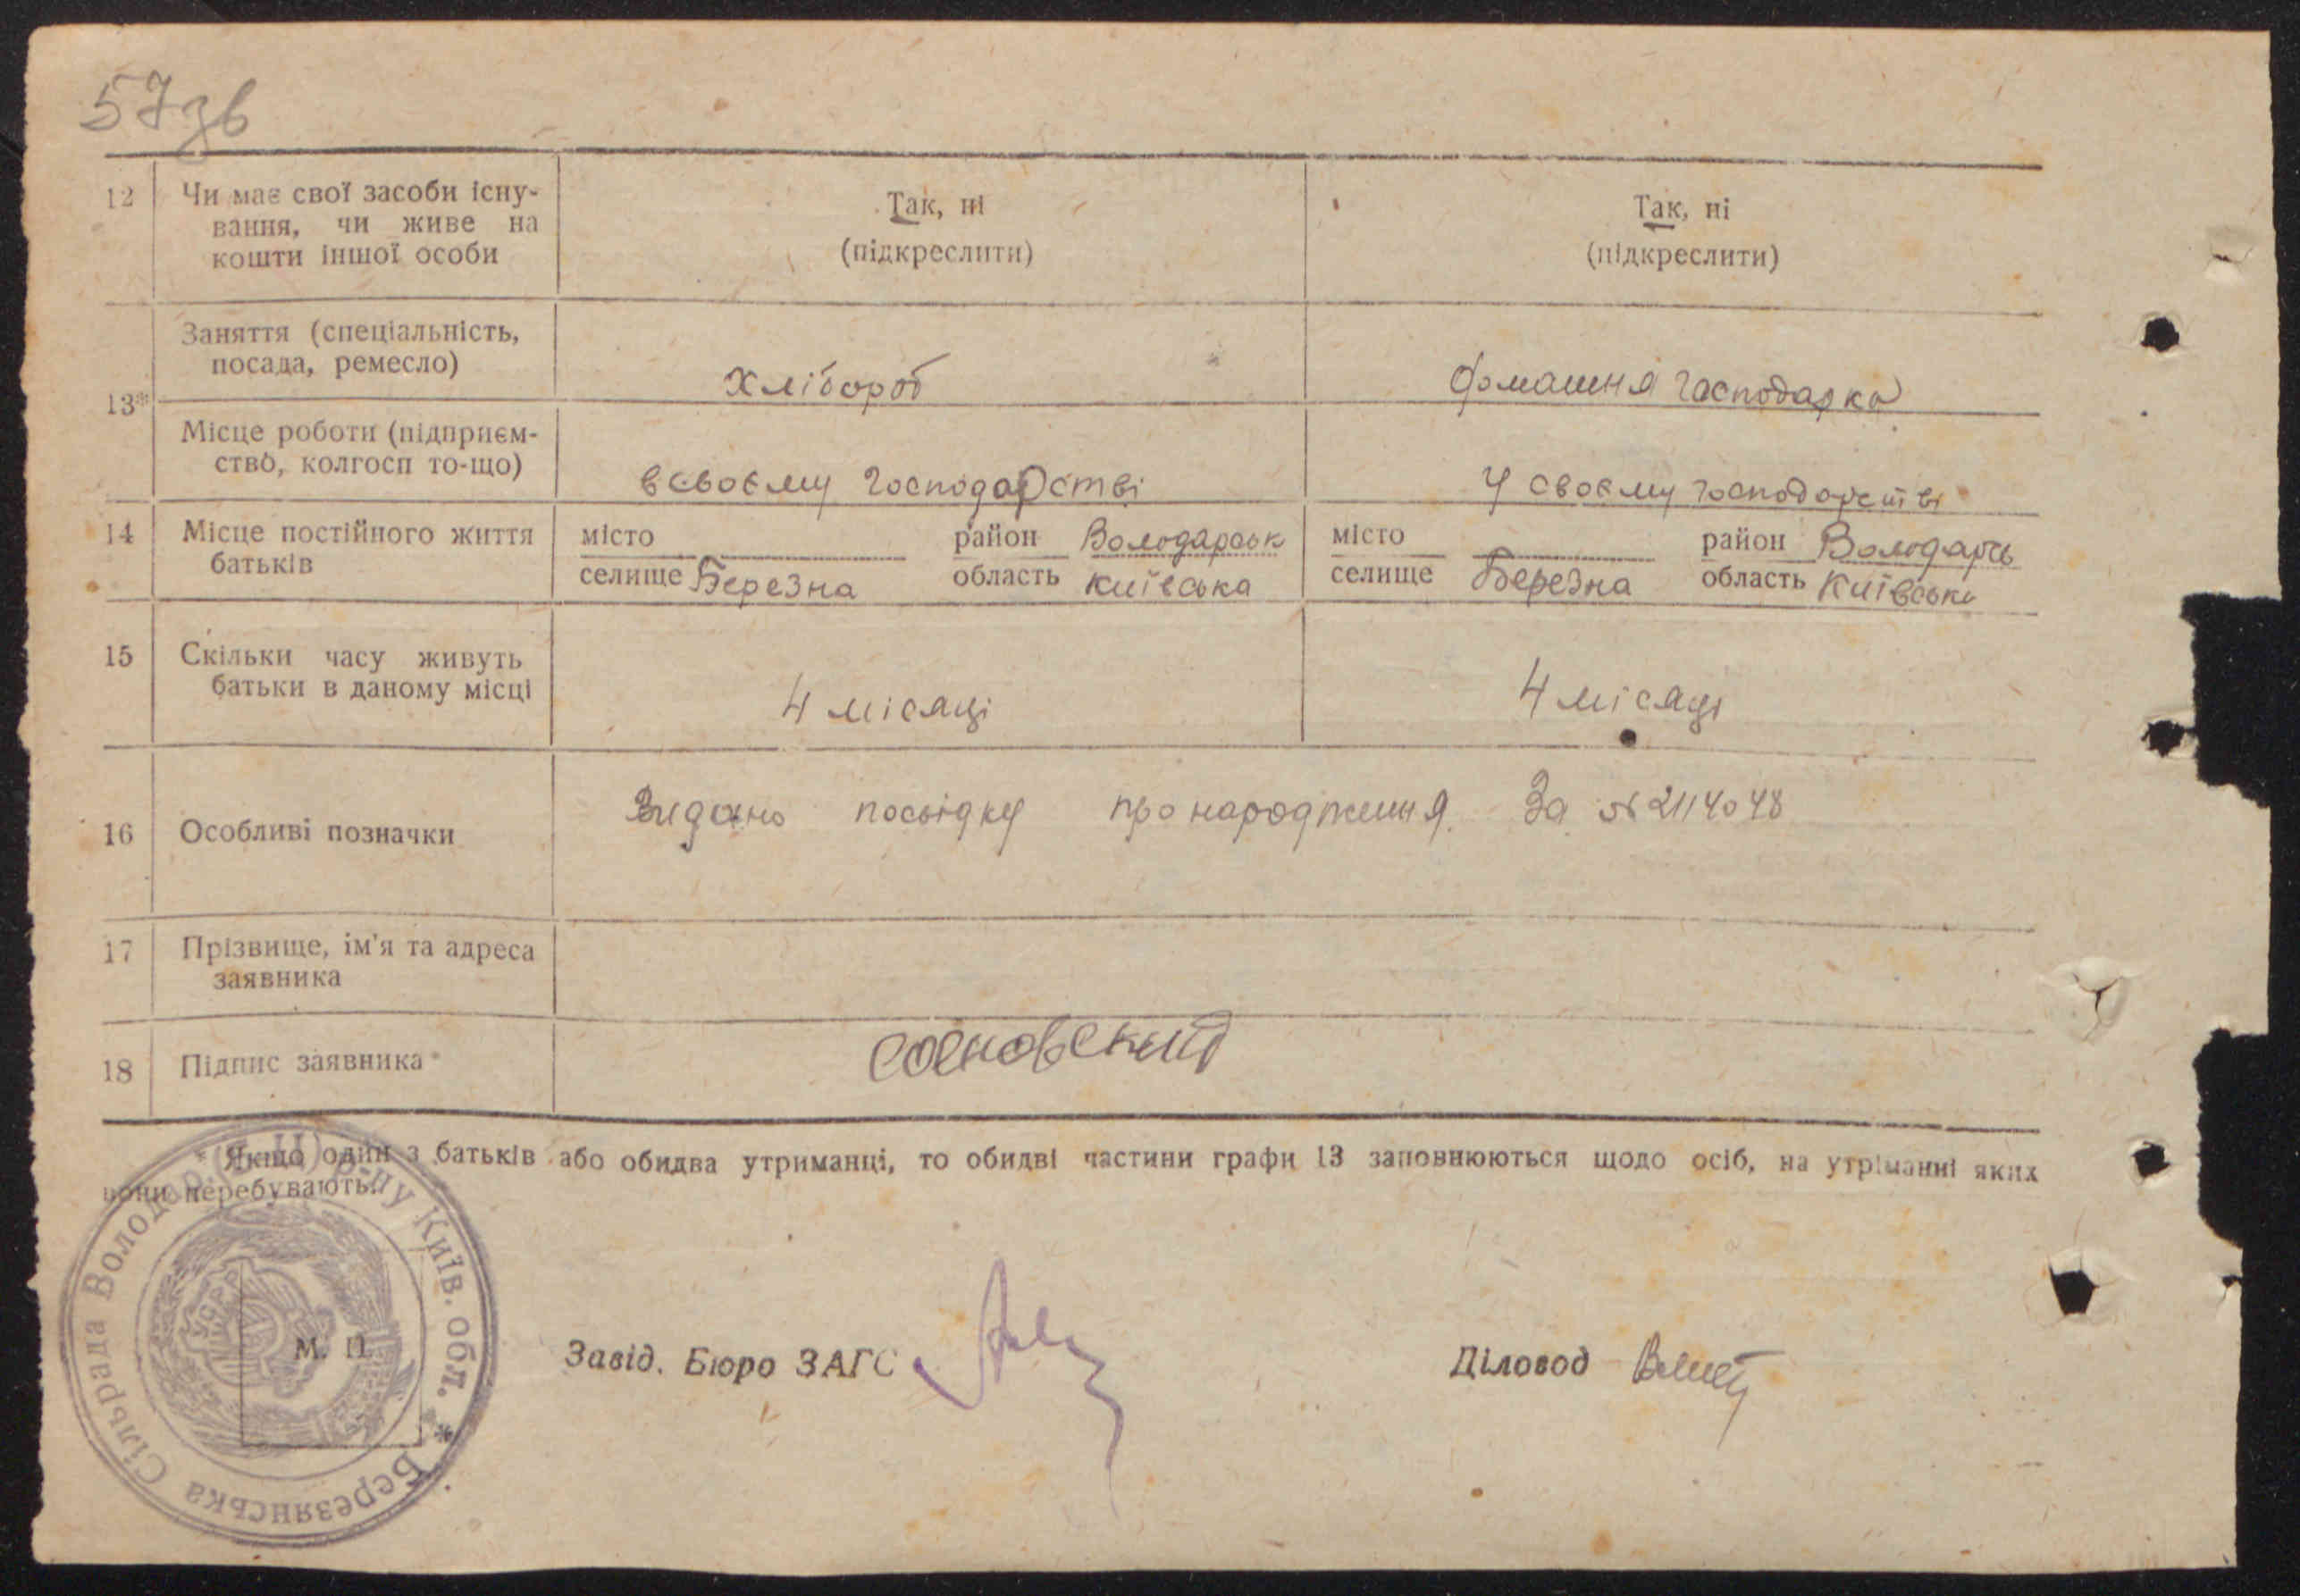 57зв
12 Чи має свої засоби існу- Так, ні Так, ні
вання, чи живе на
кошти іншої особи (підкреслити) (підкреслити)
Заняття (спеціальність,
посада, ремесло) Хлібороб домашня господарка
13*
Місце роботи (підприєм-
ство, колгосп то-що) в своєму господарстві У своєму господарстві
14 Місце постійного життя місто район Володарськ місто район Володарсь
батьків селище Березна область Київська селище Березна область Київська
15 Скільки часу живуть
батьки в даному місці 4 місяці 4 місяці
16 Особливі позначки Видано посвідку про народження За № 2114048
17 Прізвище, ім'я та адреса
заявника
18 Підпис заявника Сосновский
* Якщо один з батьків або обидва утриманці, то обидві частини графи 13 заповнюються щодо осіб, на утріманні яких
вони перебувають.
Березянська Сільрада Володар. р-ну Київ. обл. *
УСРР
М. П.
Завід. Бюро ЗАГС
Діловод